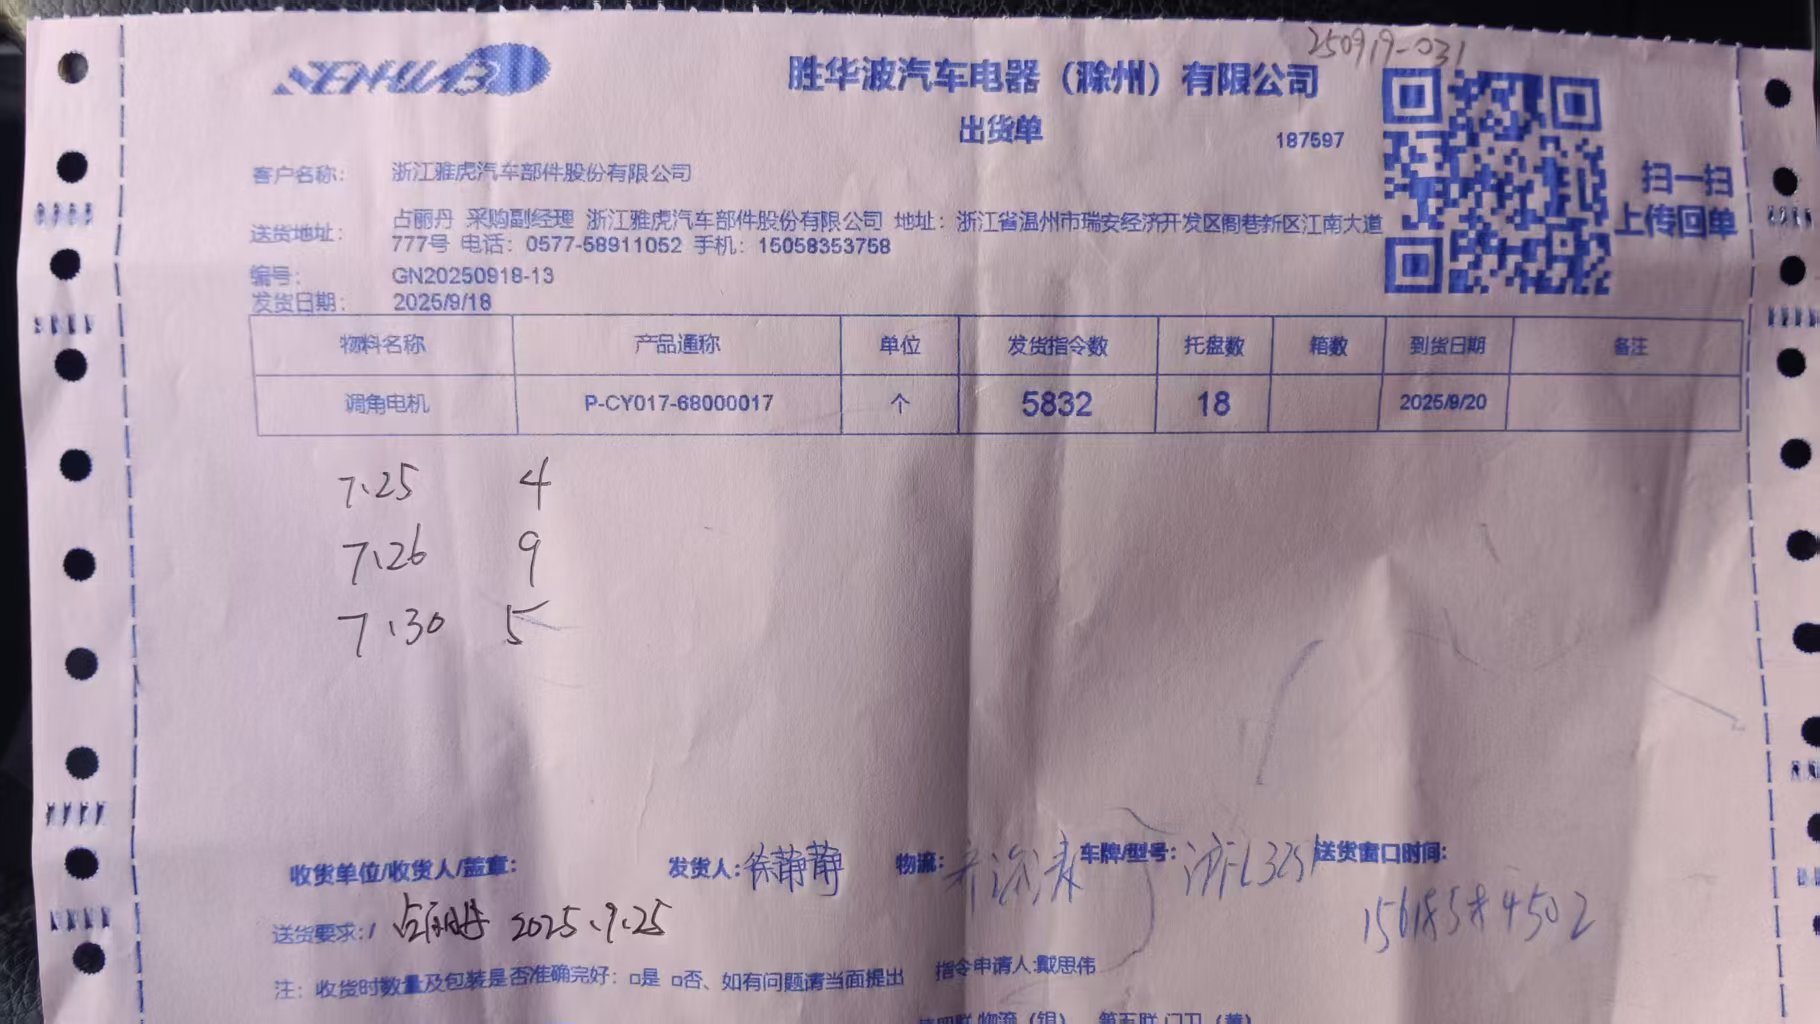 250919-031
SENHWB
胜华波汽车电器（滁州）有限公司
出货单
187597
扫一扫
上传回单
客户名称： 浙江雅虎汽车部件股份有限公司
送货地址： 占丽丹 采购副经理 浙江雅虎汽车部件股份有限公司 地址：浙江省温州市瑞安经济开发区阁巷新区江南大道
777号 电话：0577-58911052 手机：15058353758
编号： GN20250918-13
发货日期： 2025/9/18
物料名称 产品通称 单位 发货指令数 托盘数 箱数 到货日期 备注
调角电机 P-CY017-68000017 个 5832 18 2025/9/20
7.25 4
7.26 9
7.30 5
收货单位/收货人/盖章： 发货人：徐静静 物流： 车牌/型号： 送货窗口时间：
送货要求：/ 占丽丹 2025.9.25
注：收货时数量及包装是否准确完好：□是 □否、如有问题请当面提出 指令申请人:戴思伟